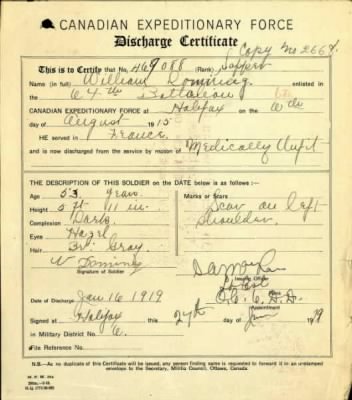 CANADIAN EXPEDITIONARY FORCE
Discharge Certificate
Copy No 2664
This is to Certify that No. 469088 (Rank) Sapper
Name (in full) William enlisted in
64th Battalion
CANADIAN EXPEDITIONARY FORCE at Halifax on the
day of August 1915
HE served in France
and is now discharged from the service by reason of Medically Unfit
THE DESCRIPTION OF THIS SOLDIER on the DATE below is as follows:
Age 53 Years Marks or Scars
Height 5 ft 11 in. Scar on left
Complexion Dark shoulder
Eyes Hazel
Hair Gray
Signature of Soldier
Issuing Officer
Date of Discharge Jan 16 1919
Appointment
Signed at Halifax this 27th Jan 1919
in Military District No. 6.
File Reference No.
N.B.—As no duplicate of this Certificate will be issued, any person finding same is requested to forward it in an unstamped
envelope to the Secretary, Militia Council, Ottawa, Canada.